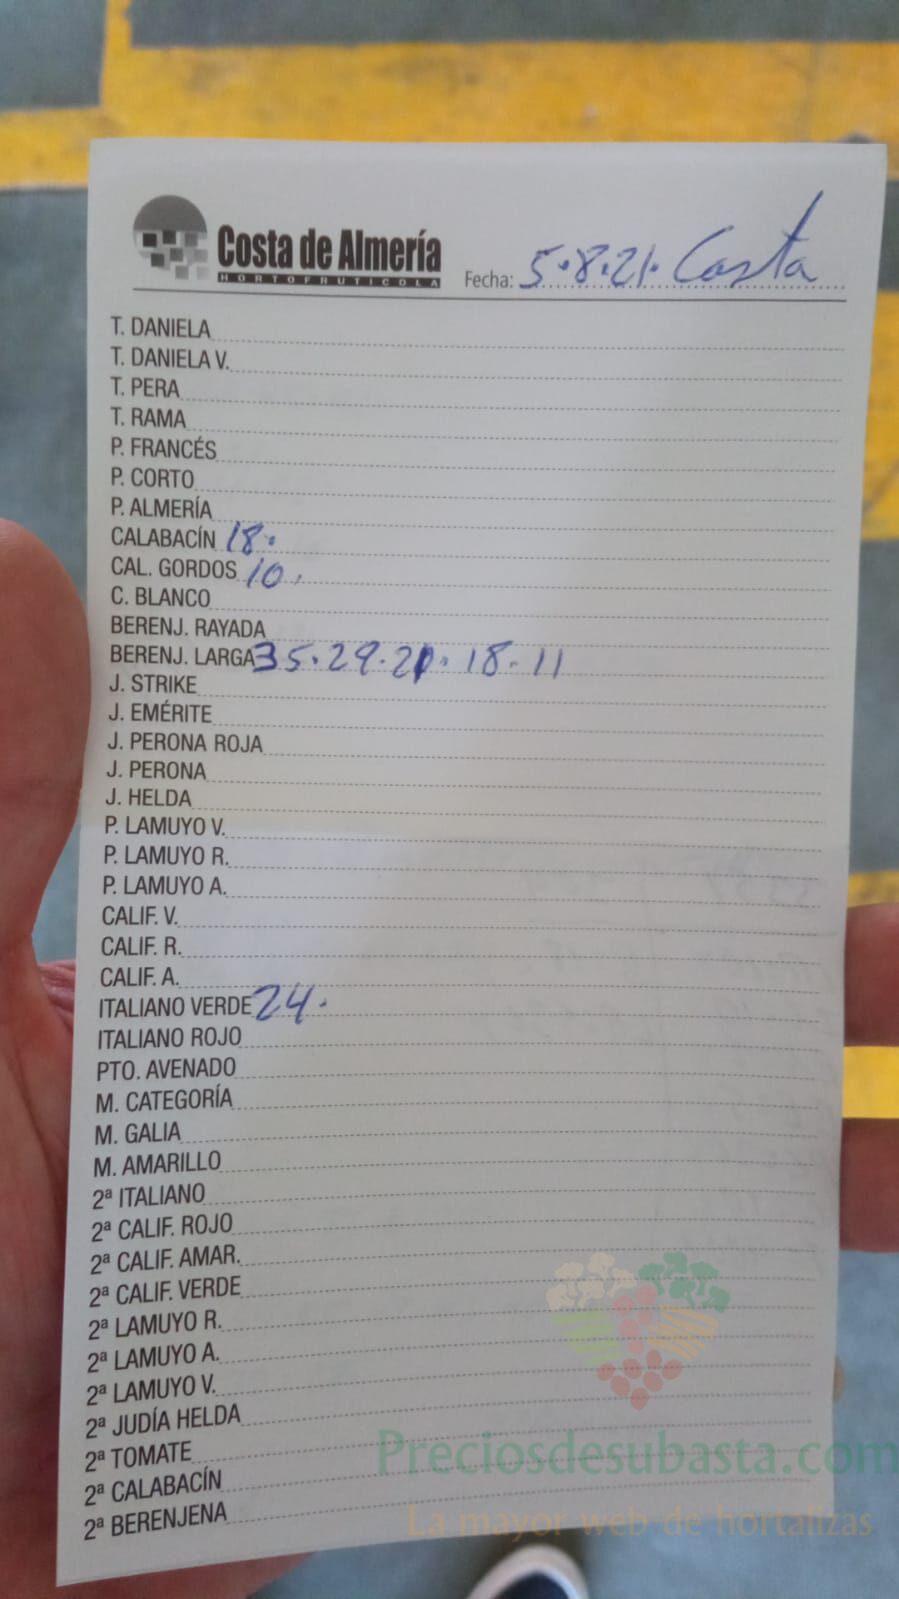 Costa de Almería
HORTOFRUTICOLA
Fecha: 5.8.21. Costa
T. DANIELA
T. DANIELA V.
T. PERA
T. RAMA
P. FRANCÉS
P. CORTO
P. ALMERÍA
CALABACÍN 18.
CAL. GORDOS 10.
C. BLANCO
BERENJ. RAYADA
BERENJ. LARGA 35.29.21.18.11
J. STRIKE
J. EMÉRITE
J. PERONA ROJA
J. PERONA
J. HELDA
P. LAMUYO V.
P. LAMUYO R.
P. LAMUYO A.
CALIF. V.
CALIF. R.
CALIF. A.
ITALIANO VERDE 24.
ITALIANO ROJO
PTO. AVENADO
M. CATEGORÍA
M. GALIA
M. AMARILLO
2ª ITALIANO
2ª CALIF. ROJO
2ª CALIF. AMAR.
2ª CALIF. VERDE
2ª LAMUYO R.
2ª LAMUYO A.
2ª LAMUYO V.
2ª JUDÍA HELDA
2ª TOMATE
2ª CALABACÍN
2ª BERENJENA
Preciosdesubasta.com
La mayor web de hortalizas